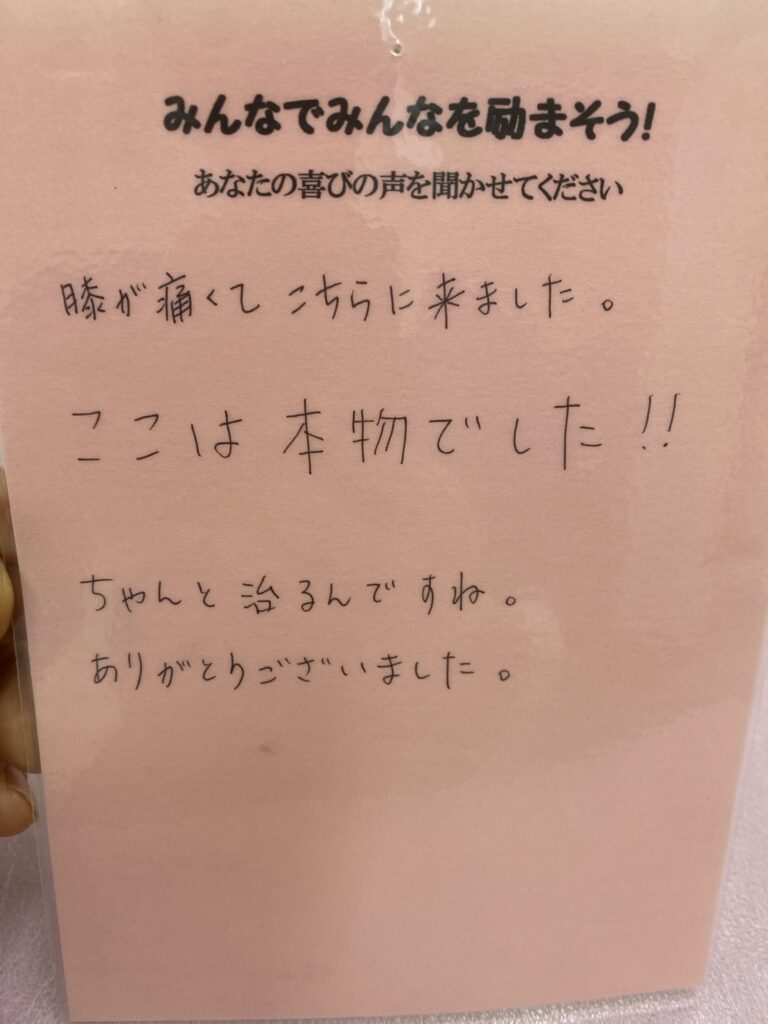 みんなでみんなを励まそう!
あなたの喜びの声を聞かせてください
膝が痛くて こちらに来ました。
ここは 本物でした!!
ちゃんと 治るんですね。
ありがとうございました。